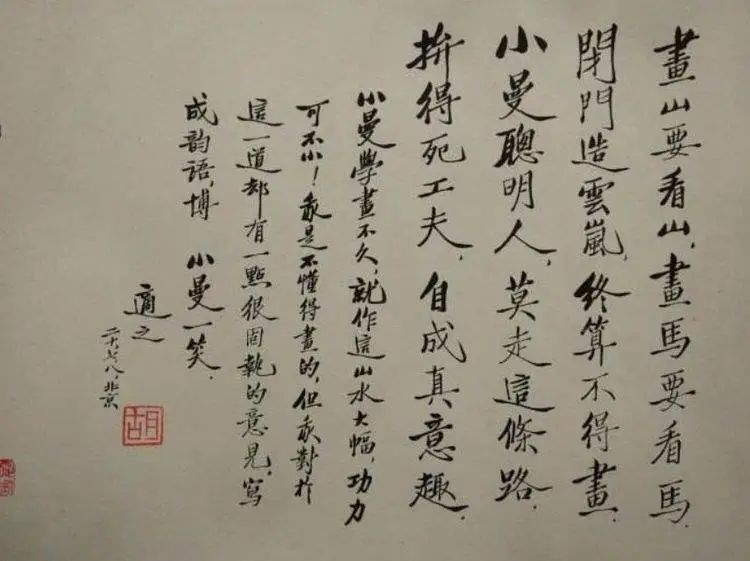 畫山要看山,畫馬要看馬.
閉門造雲嵐,終算不得畫.
小曼聰明人,莫走這條路.
拚得死工夫,自成真意趣.
小曼學畫不久,就作這山水大幅,功力
可不小!我是不懂得畫的,但我對於
這一道却有一點很固執的意見,寫
成韵語,博
小曼一笑.
適之
二十,七,八,北京
胡